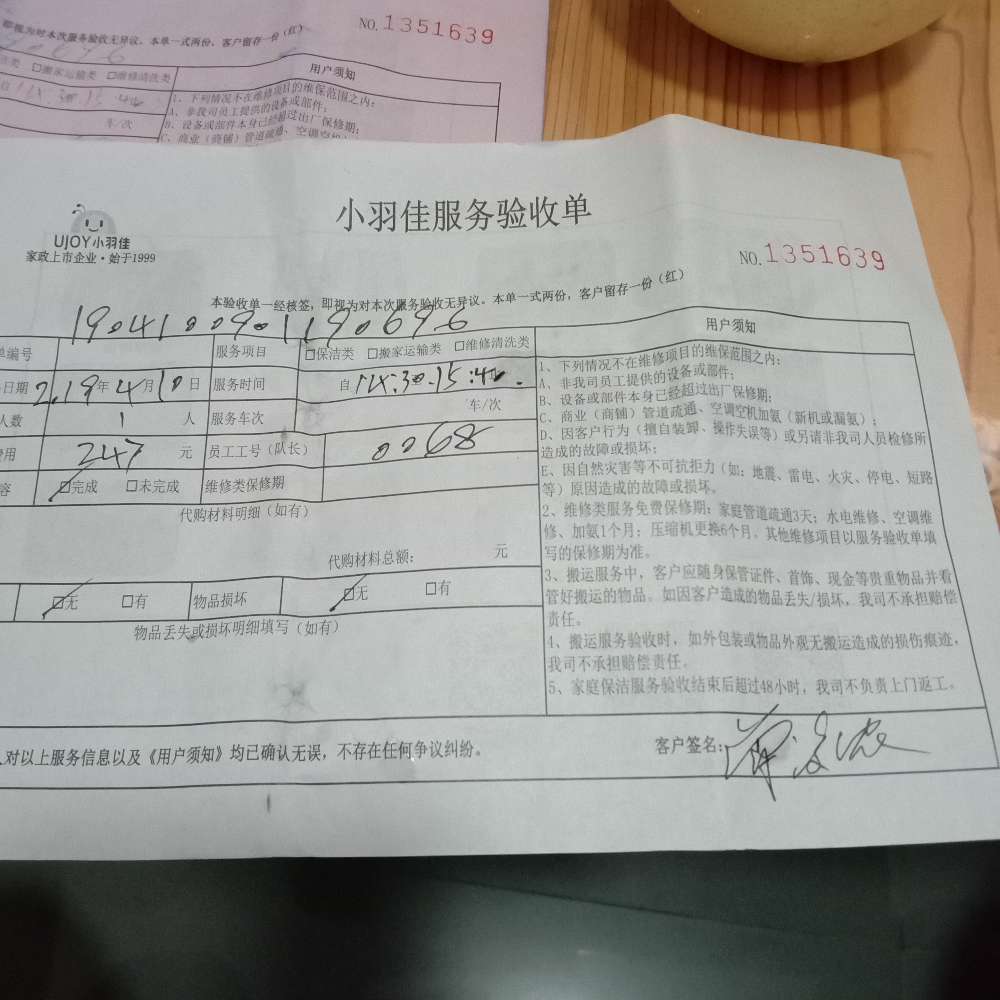 即视为对本次服务验收无异议。本单一式两份，客户留存一份（红）
NO.1351639
□搬家运输类 □维修清洗类
用户须知
1、下列情况不在维修项目的维保范围之内：
A、非我司员工提供的设备或部件；
车/次
B、设备或部件本身已经超过出厂保修期；
C、商业（商铺）管道疏通、空调空机
UJOY小羽佳
家政上市企业·始于1999
小羽佳服务验收单
NO.1351639
本验收单一经核签，即视为对本次服务验收无异议。本单一式两份，客户留存一份（红）
1904100901190696
单编号 服务项目 □保洁类 □搬家运输类 □维修清洗类
日期 2019年4月10日 服务时间 自
人数 1 人 服务车次 车/次
费用 247 元 员工工号（队长） 0068
容 □完成 □未完成 维修类保修期
代购材料明细（如有）
代购材料总额： 元
□无 □有 物品损坏 □无 □有
物品丢失或损坏明细填写（如有）
用户须知
1、下列情况不在维修项目的维保范围之内：
A、非我司员工提供的设备或部件；
B、设备或部件本身已经超过出厂保修期；
C、商业（商铺）管道疏通、空调空机加氨（新机或漏氨）；
D、因客户行为（擅自装卸、操作失误等）或另请非我司人员检修所
造成的故障或损坏；
E、因自然灾害等不可抗拒力（如：地震、雷电、火灾、停电、短路
等）原因造成的故障或损坏。
2、维修类服务免费保修期：家庭管道疏通3天；水电维修、空调维
修、加氨1个月；压缩机更换6个月。其他维修项目以服务验收单填
写的保修期为准。
3、搬运服务中，客户应随身保管证件、首饰、现金等贵重物品并看
管好搬运的物品。如因客户造成的物品丢失/损坏，我司不承担赔偿
责任。
4、搬运服务验收时，如外包装或物品外观无搬运造成的损伤痕迹，
我司不承担赔偿责任。
5、家庭保洁服务验收结束后超过48小时，我司不负责上门返工。
人对以上服务信息以及《用户须知》均已确认无误，不存在任何争议纠纷。
客户签名：